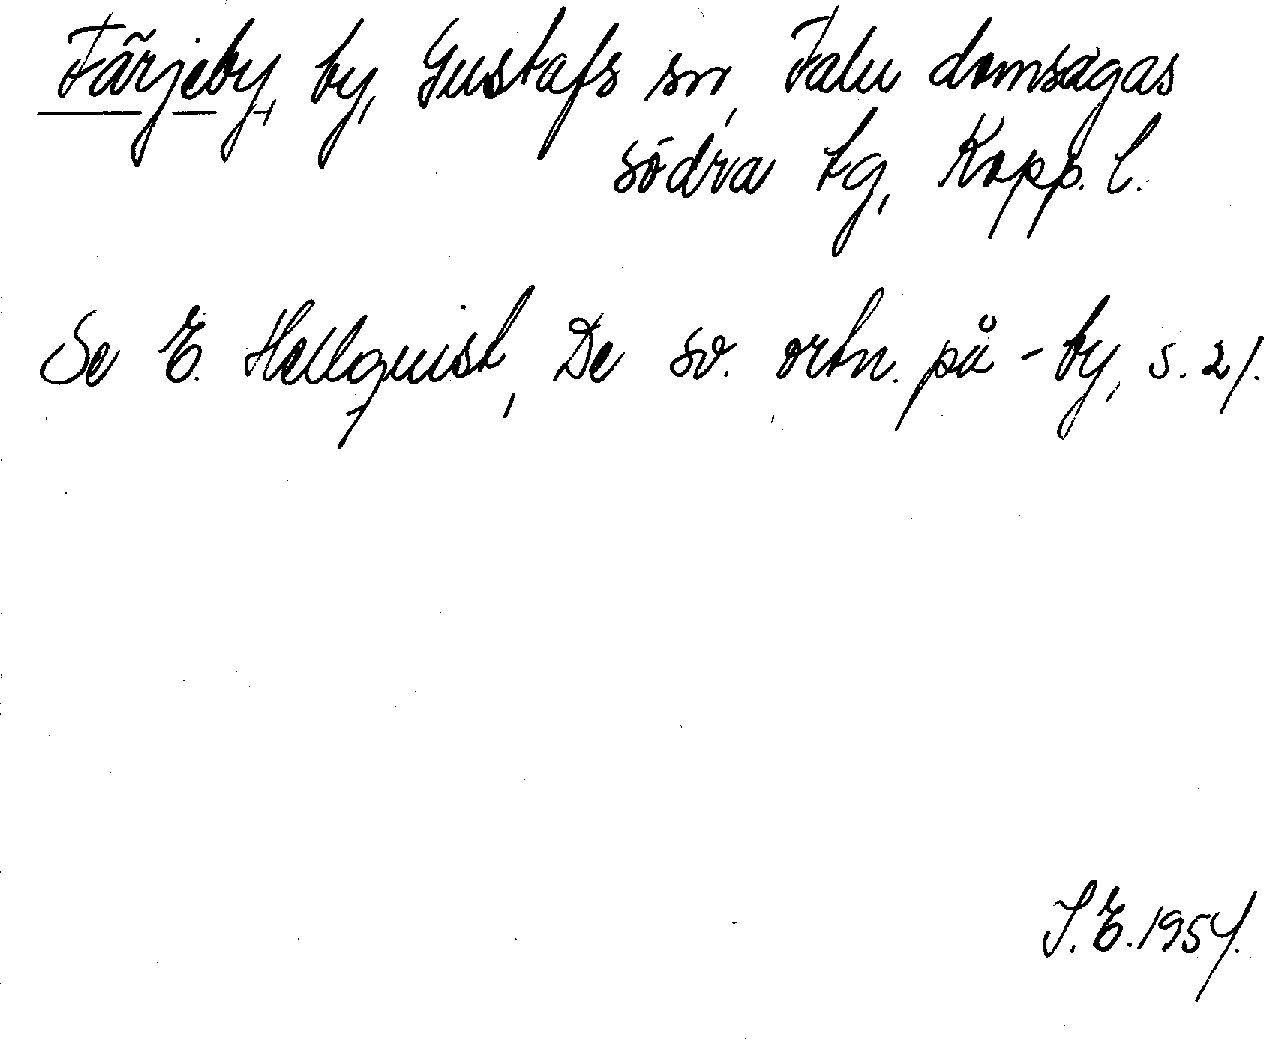 Färjeby, by, Gustafs sn, Falu domsagas
södra tg, Kopp. l.
Se E. Hellquist, De sv. ortn. på -by, s. 21.
S.E. 1954.